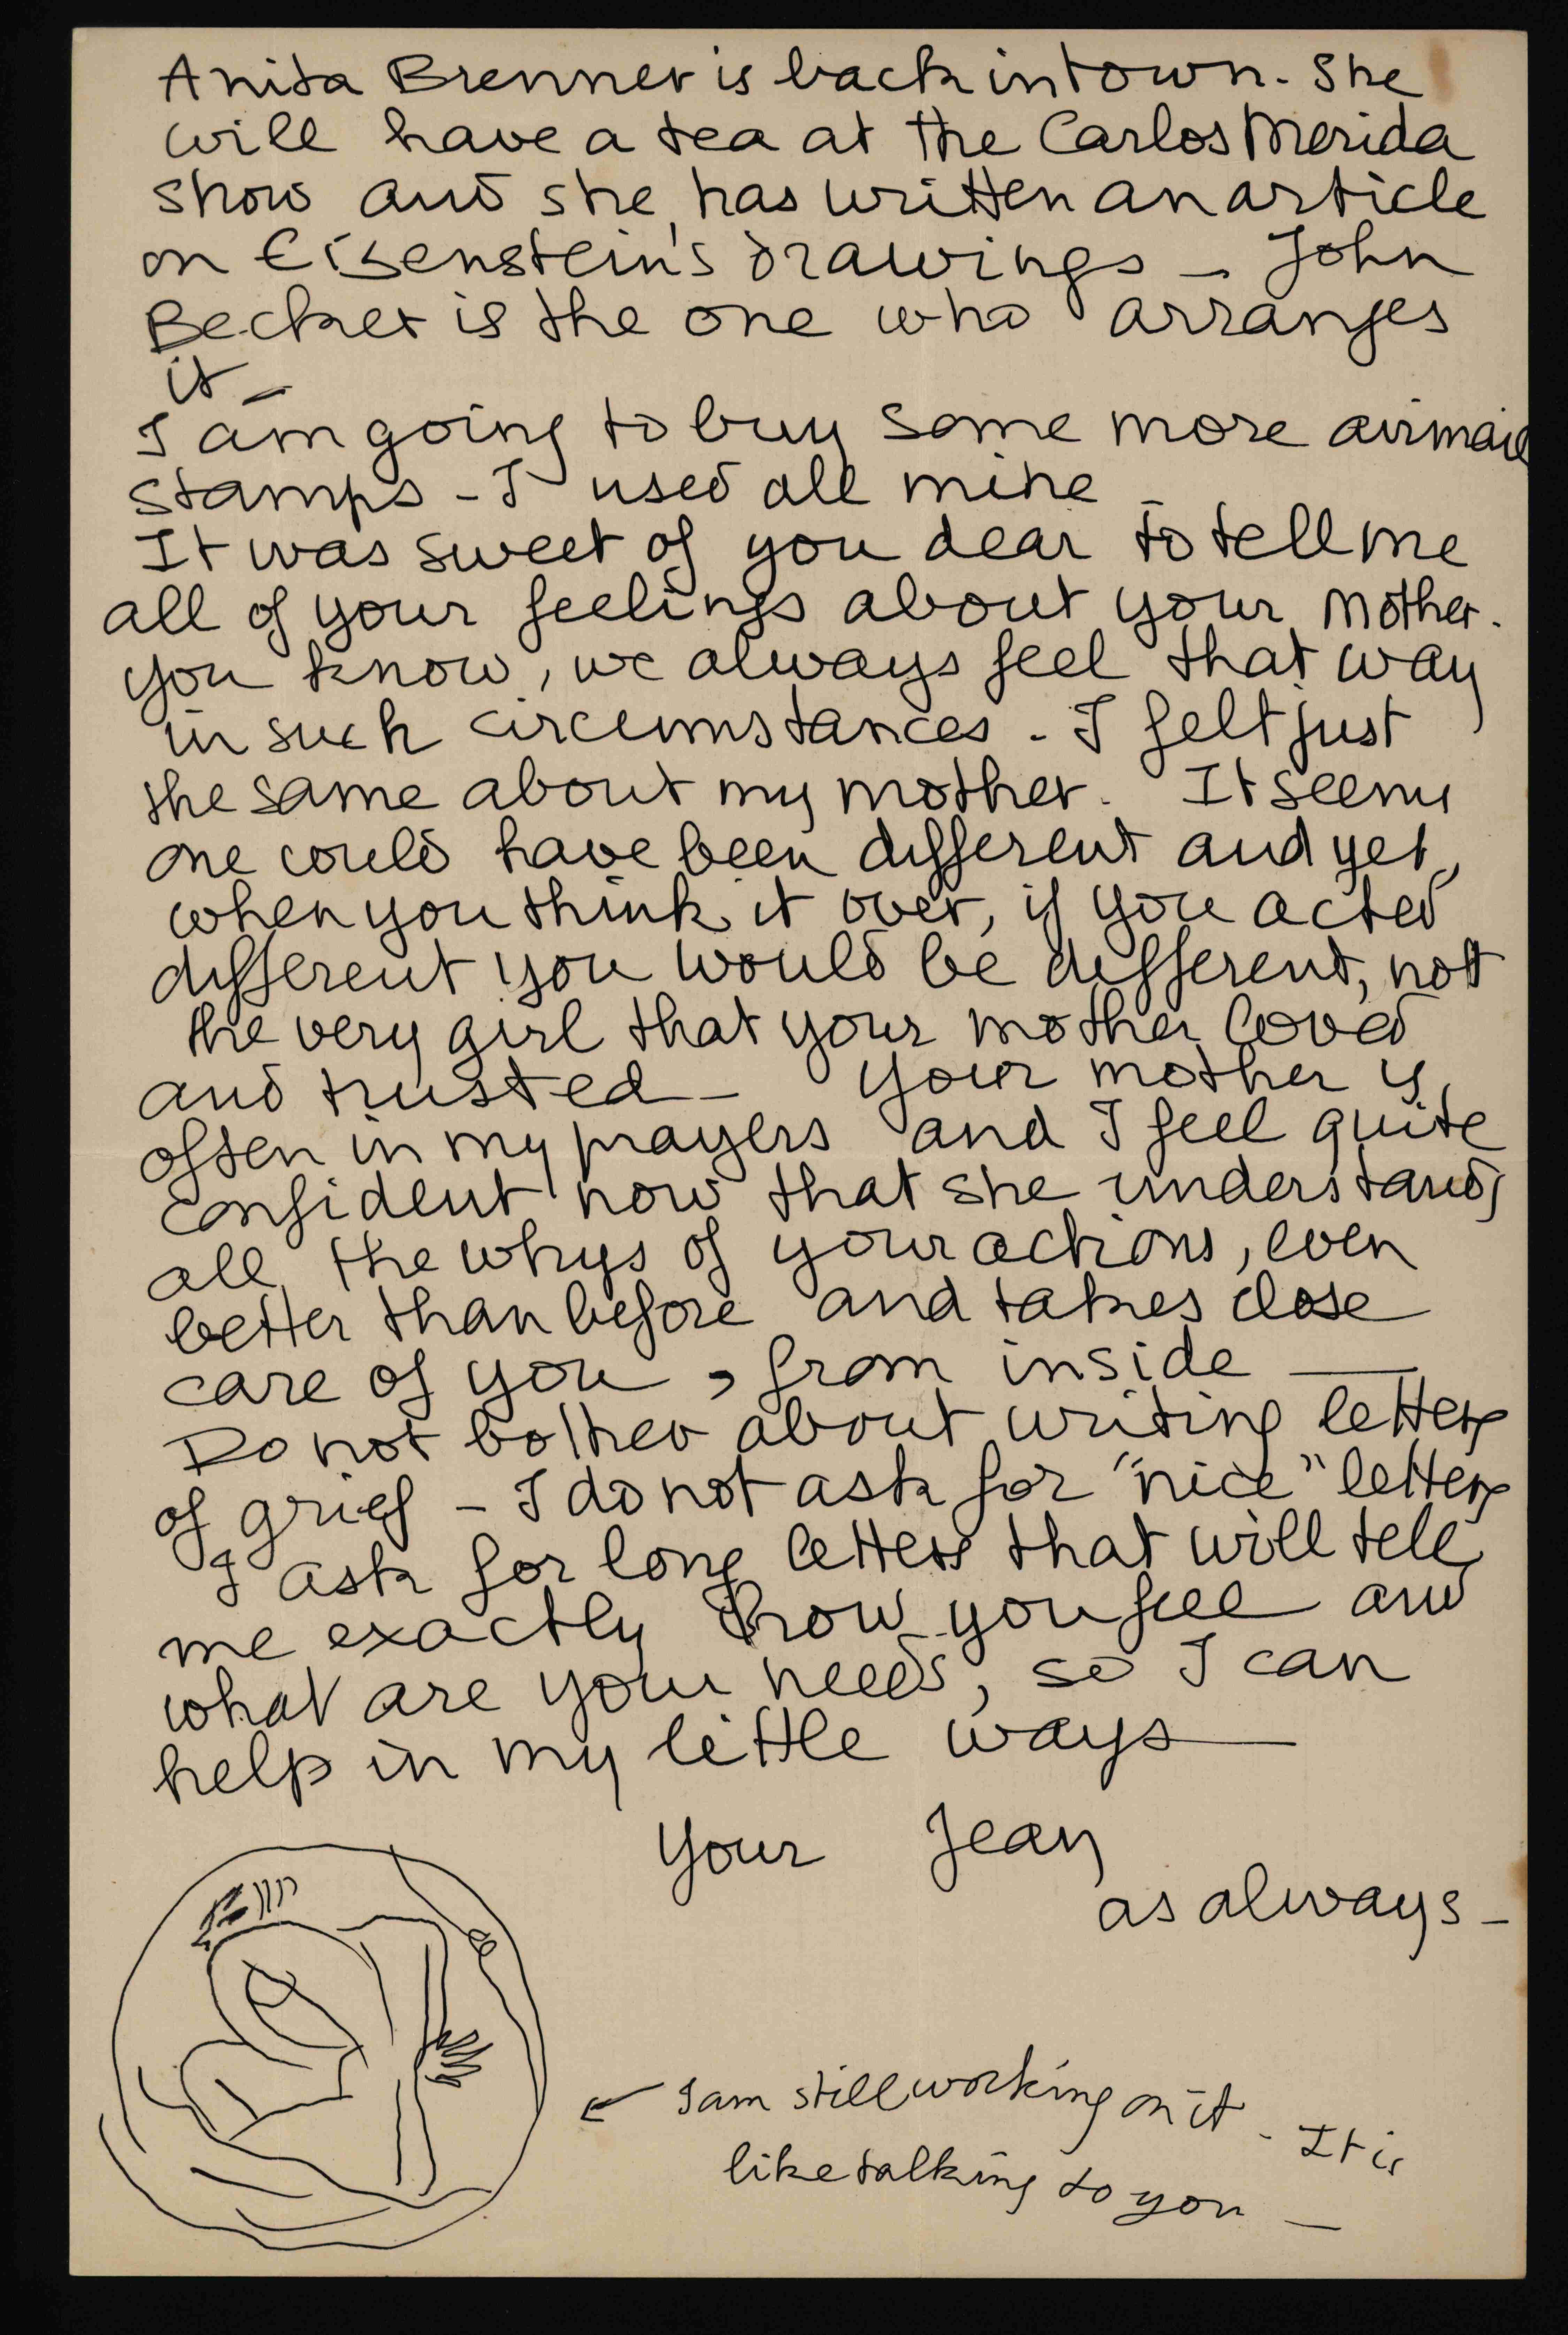 Anita Brenner is back in town. She
will have a tea at the Carlos Merida
show and she has written an article
on Eisenstein's drawings - John
Becker is the one who arranges
it -
I am going to buy some more airmail
stamps - I used all mine -
It was sweet of you dear to tell me
all of your feelings about your mother.
you know, we always feel that way
in such circumstances - I felt just
the same about my mother. It seems
one could have been different and yet,
when you think it over, if you acted
different you would be different, not
the very girl that your mother loved
and trusted - Your mother is
often in my prayers and I feel quite
confident now that she understands
all the whys of your actions, even
better than before and takes close
care of you, from inside —
Do not bother about writing letters
of grief - I do not ask for "nice" letters
I ask for long letters that will tell
me exactly how you feel and
what are your needs, so I can
help in my little ways —
Your Jean
as always -
← I am still working on it. It is
like talking to you —